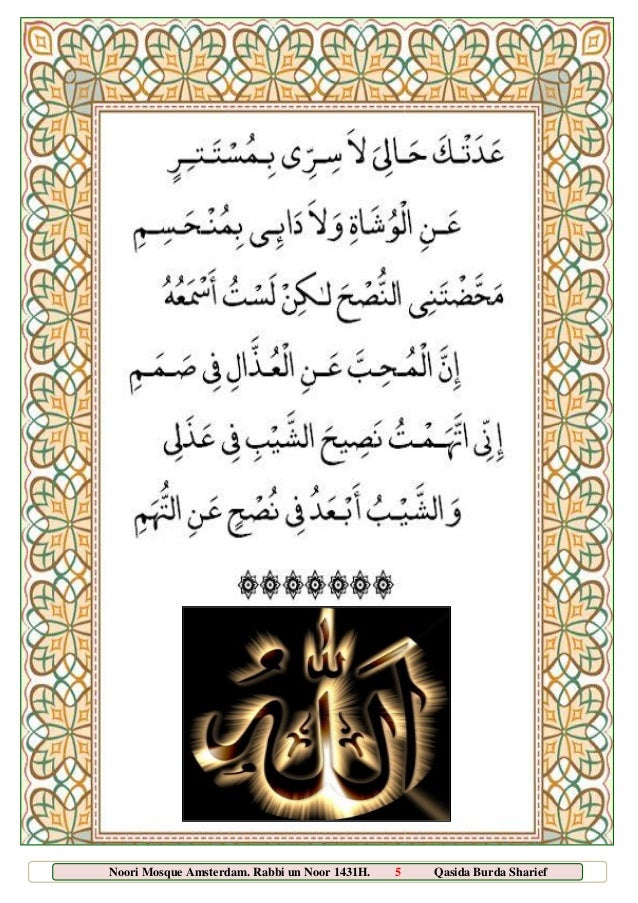 عَدَتْكَ حَالِيَ لاَ سِرِّى بِمُسْتَتِرٍ
عَنِ الْوُشَاةِ وَلاَ دَائِى بِمُنْحَسِمِ
مَحَّضْتَنِى النُّصْحَ لٰكِنْ لَسْتُ أَسْمَعُهُ
إِنَّ الْمُحِبَّ عَنِ الْعُذَّالِ فِى صَمَمِ
إِنِّى اتَّهَمْتُ نَصِيحَ الشَّيْبِ فِى عَذَلِى
وَالشَّيْبُ أَبْعَدُ فِى نُصْحٍ عَنِ التُّهَمِ
اللهُ
Noori Mosque Amsterdam. Rabbi un Noor 1431H. 5 Qasida Burda Sharief